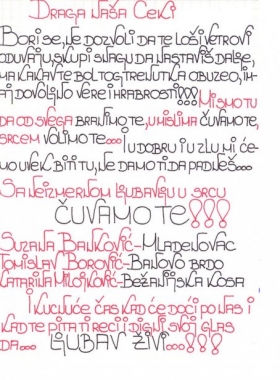 DRAGA NAŠA CEKI
BORI SE, NE DOZVOLI DA TE LOŠI VETROVI
ODUVAJU, SKUPI SNAGU DA NASTAVIŠ DALJE,
MA KAKAV TE BOL TOG TRENUTKA OBUZEO, IM-
AJ DOVOLJNO VERE I HRABROSTI!!! MI SMO TU
DA OD SVEGA BRANIMO TE, U MISLIMA ČUVAMO TE,
SRCEM VOLIMO TE.... I U DOBRU I U ZLU MI ĆE-
MO UVEK BITI TU, NE DAMO TI DA PADNEŠ....
SA NEIZMERNOM LJUBAVLJU U SRCU
ČUVAMO TE!!!
SUZANA BANKOVIĆ-MLADENOVAC
TOMISLAV BOROVIĆ-BANOVO BRDO
KATARINA MILOJKOVIĆ-BEŽANIJSKA KOSA
I KUCNUĆE ČAS KAD ĆE DOĆI PO NAS I
KAD TE PITA TI RECI I DIGNI SVOJ GLAS
DA... LJUBAV ŽIVI...!!!